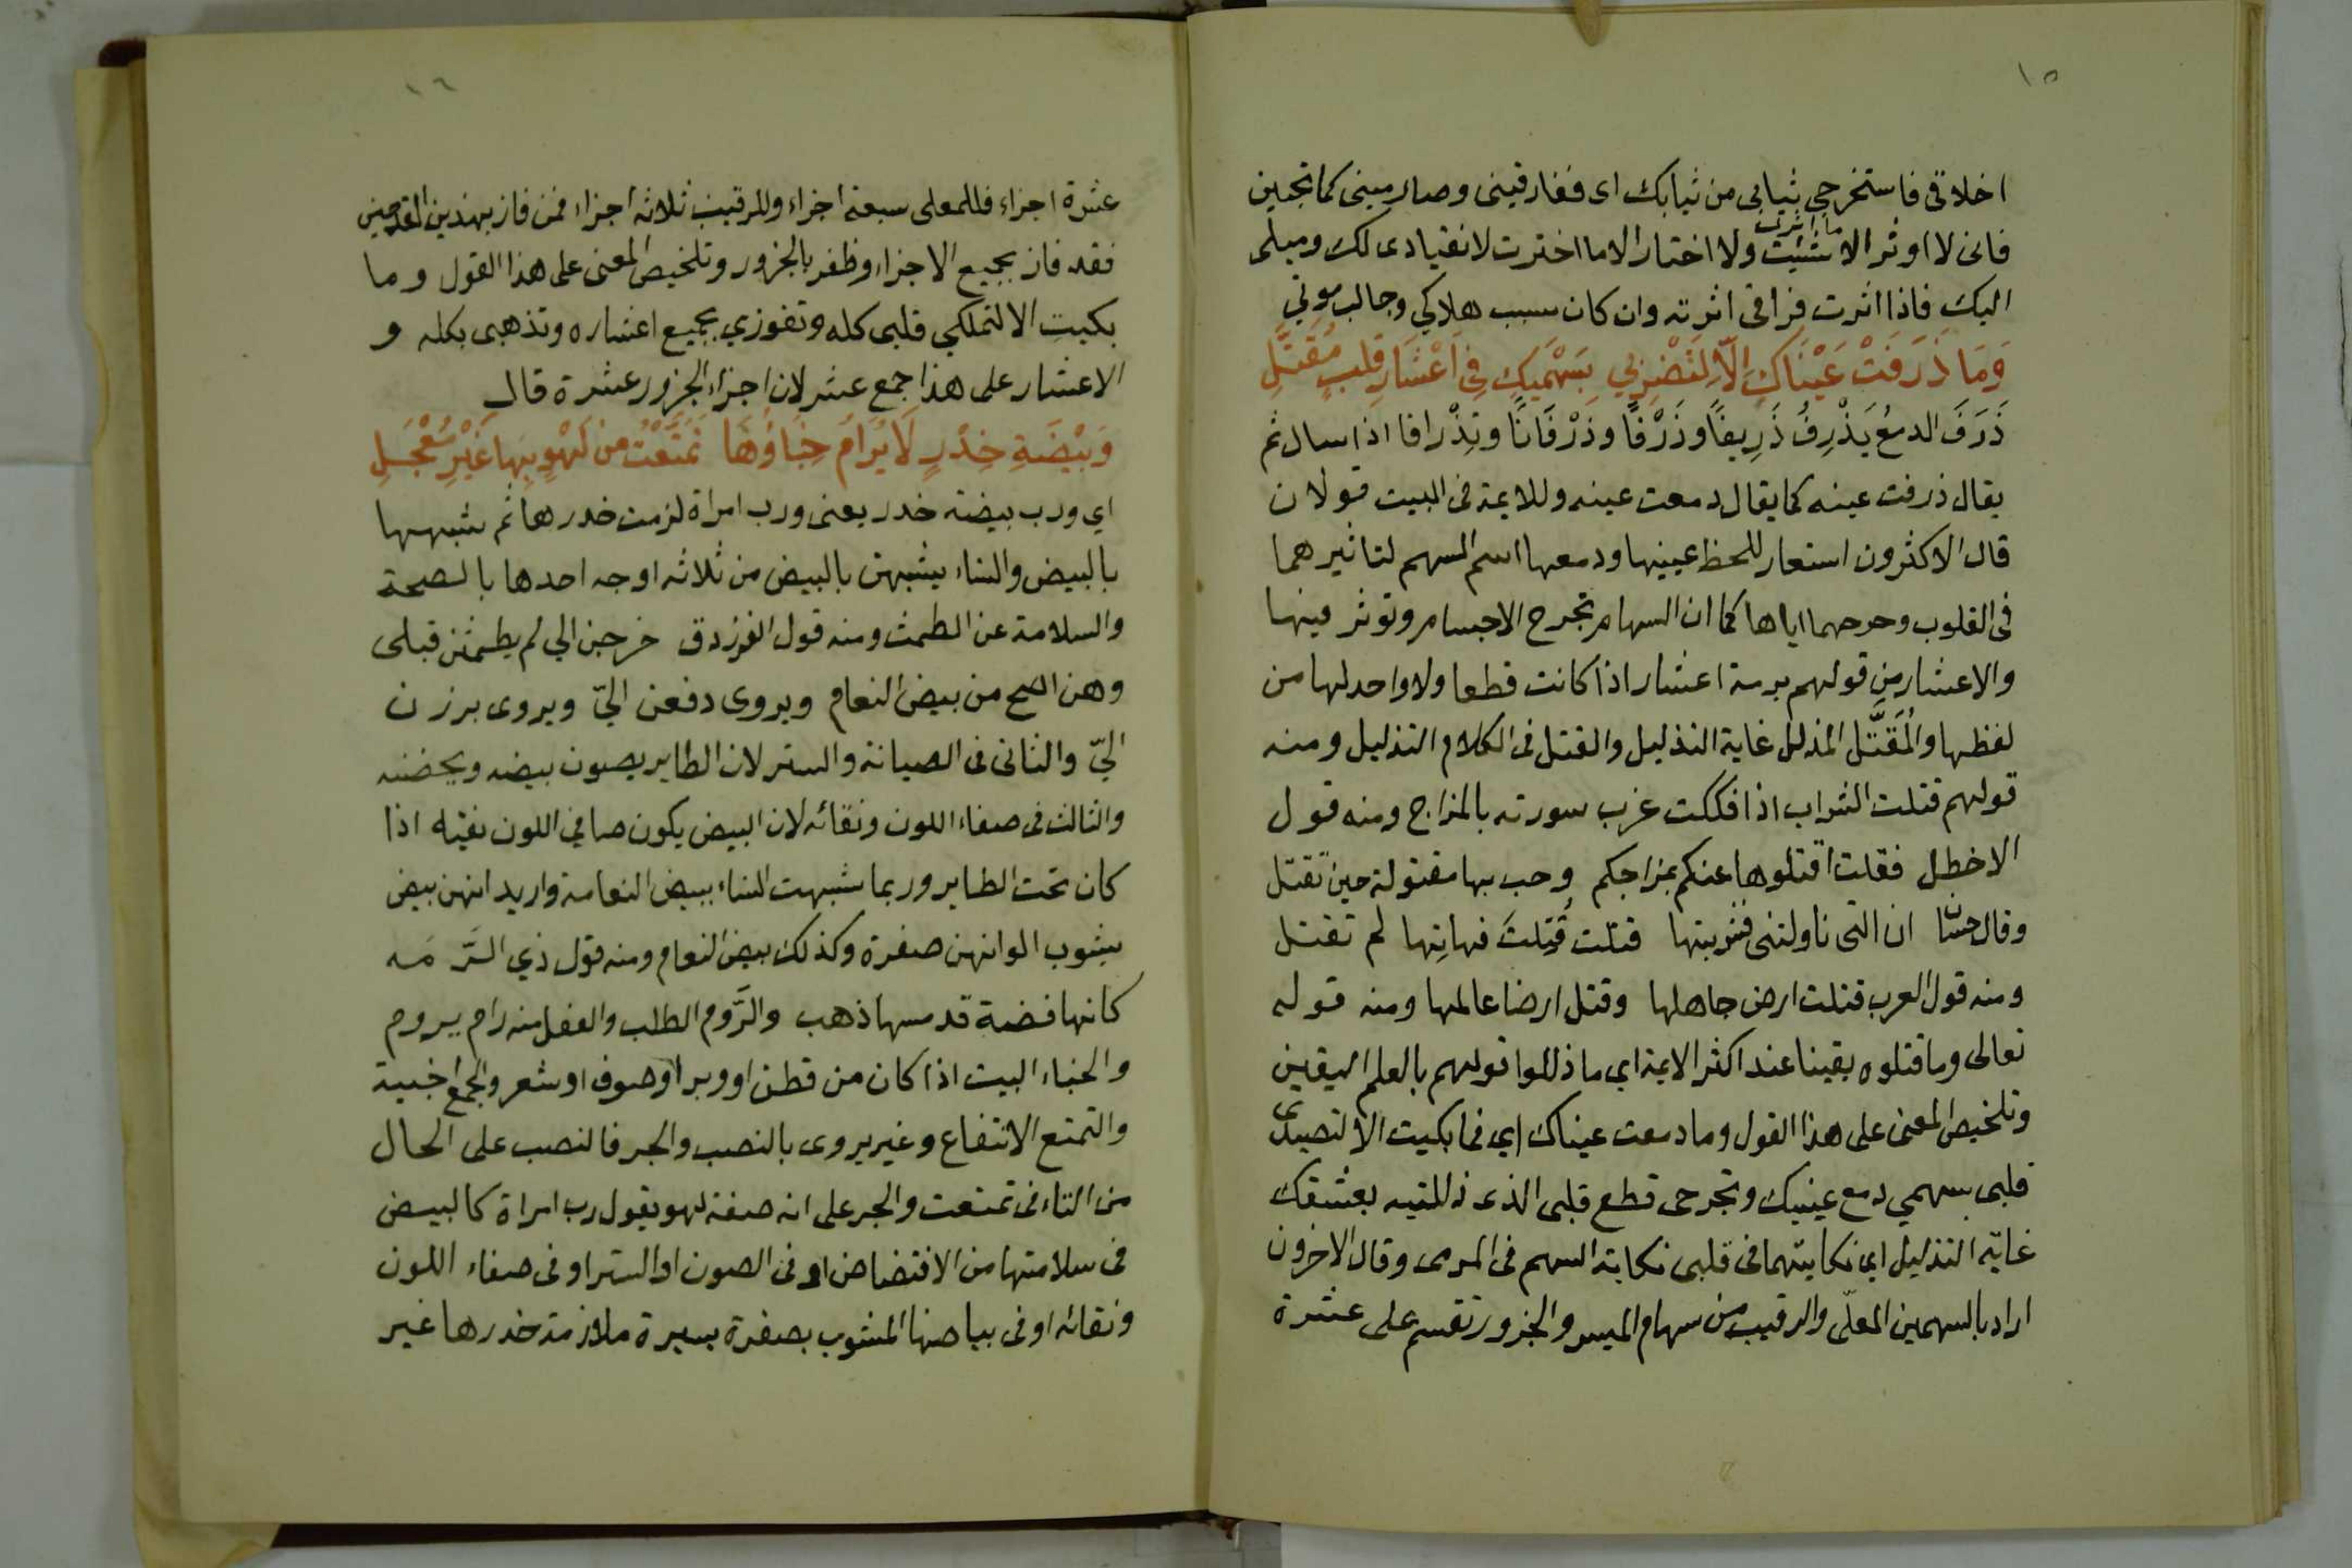 ١٥
اخلاقى فاستخرجي ثيابى من ثيابك اى ففارقينى وصارمينى كما تحبين
فانى لا اوثر الا ما اثرت شئيت ولا اختار الا ما اخترت لانقيادى لك وميلى
اليك فاذا اثرت فراقى اثرته وان كان سبب هلاكي وجالب موتي
وَمَا ذَرَفَتْ عَيْنَاكِ اِلَّا لِتَضْرِبِي بِسَهْمَيْكِ فِي اَعْشَارِ قَلْبٍ مُقَتَّلِ
ذَرَفَ الدمعُ يَذْرِفُ ذَرِيفًا وذَرْفًا وذَرْفَانًا وتِذْرافا اذا سال ثم
يقال ذرفت عينه كما يقال دمعت عينه وللايمة فى البيت قولان
قال الاكثرون استعار للحظ عينيها ودمعها اسم السهم لتاثيرهما
فى القلوب وجرحهما اياها كما ان السهام تجرح الاجسام وتوثر فيها
والاعشار من قولهم برمة اعشار اذا كانت قطعا ولا واحد لها من
لفظها والمُقَتَّل المذلل غاية التذليل والقتل فى الكلام التذليل ومنه
قولهم قتلت الشراب اذا فككت غرب سورته بالمزاج ومنه قول
الاخطل فقلت اقتلوها عنكم بمزاجكم وحب بها مقتولة حين تقتل
وقال حسّان ان التى ناولتنى فشربتها قتلت قُتِلتَ فهاتِها لم تقتل
ومنه قول العرب قتلت ارض جاهلها وقتل ارضا عالمها ومنه قوله
تعالى وما قتلوه يقينا عند اكثر الايمة اي ما ذللوا قولهم بالعلم اليقين
وتلخيص المعنى على هذا القول وما دمعت عيناك اي فما بكيت الا لتصيدى
قلبى بسهمي دمع عينيك وتجرحى قطع قلبى الذى ذللتيه بعشقك
غاية التذليل اى نكايتهما فى قلبى نكاية السهم فى المرمى وقال الاخرون
اراد بالسهمين المعلّى والرقيب من سهام الميسر والجزور تقسم على عشرة
١٦
عشرة اجزاء فللمعلى سبعة اجزاء وللرقيب ثلاثه اجزاء فمن فاز بهذين القدحين
فقد فاز بجميع الاجزاء وظفر بالجزور وتلخيص المعنى على هذا القول وما
بكيت الا لتملكي قلبى كله وتفوزي بجميع اعشاره وتذهبى بكله و
الاعشار على هذا جمع عشر لان اجزاء الجزور عشرة قال
وَبَيْضَةِ خِدْرٍ لَا يُرَامُ خِبَاؤُهَا تَمَتَّعْتُ من لَهْوٍ بِهَا غَيْرِ مُعْجَلِ
اي ورب بيضة خدر يعنى ورب امراة لزمت خدرها ثم شبهها
بالبيض والنساء يشبهن بالبيض من ثلاثه اوجه احدها بالصحة
والسلامة عن الطمث ومنه قول الفرزدق خرجن الي لم يطمثن قبلى
وهن اصح من بيض النعام ويروى دفعن اليّ ويروى برزن
اليّ والثانى فى الصيانة والستر لان الطاير يصون بيضه ويحضنه
والثالث فى صفاء اللون ونقائه لان البيض يكون صافي اللون نقيه اذا
كان تحت الطاير وربما شبهت النساء ببيض النعامة واريد انهن بيض
يشوب الوانهن صفرة وكذلك بيض النعام ومنه قول ذي الرّمه
كانها فضة قد مسها ذهب والرَّوم الطلب والفعل منه رام يروم
والخباء البيت اذا كان من قطن او وبر او صوف او شعر والجمع اخبية
والتمتع الانتفاع وغير يروى بالنصب والجر فالنصب على الحال
من التاء فى تمتعت والجر على انه صفة لهو يقول رب امراة كالبيض
فى سلامتها من الافتضاض او فى الصون او الستر او فى صفاء اللون
ونقائه او فى بياضها المشوب بصفرة يسيرة ملازمة خدرها غير